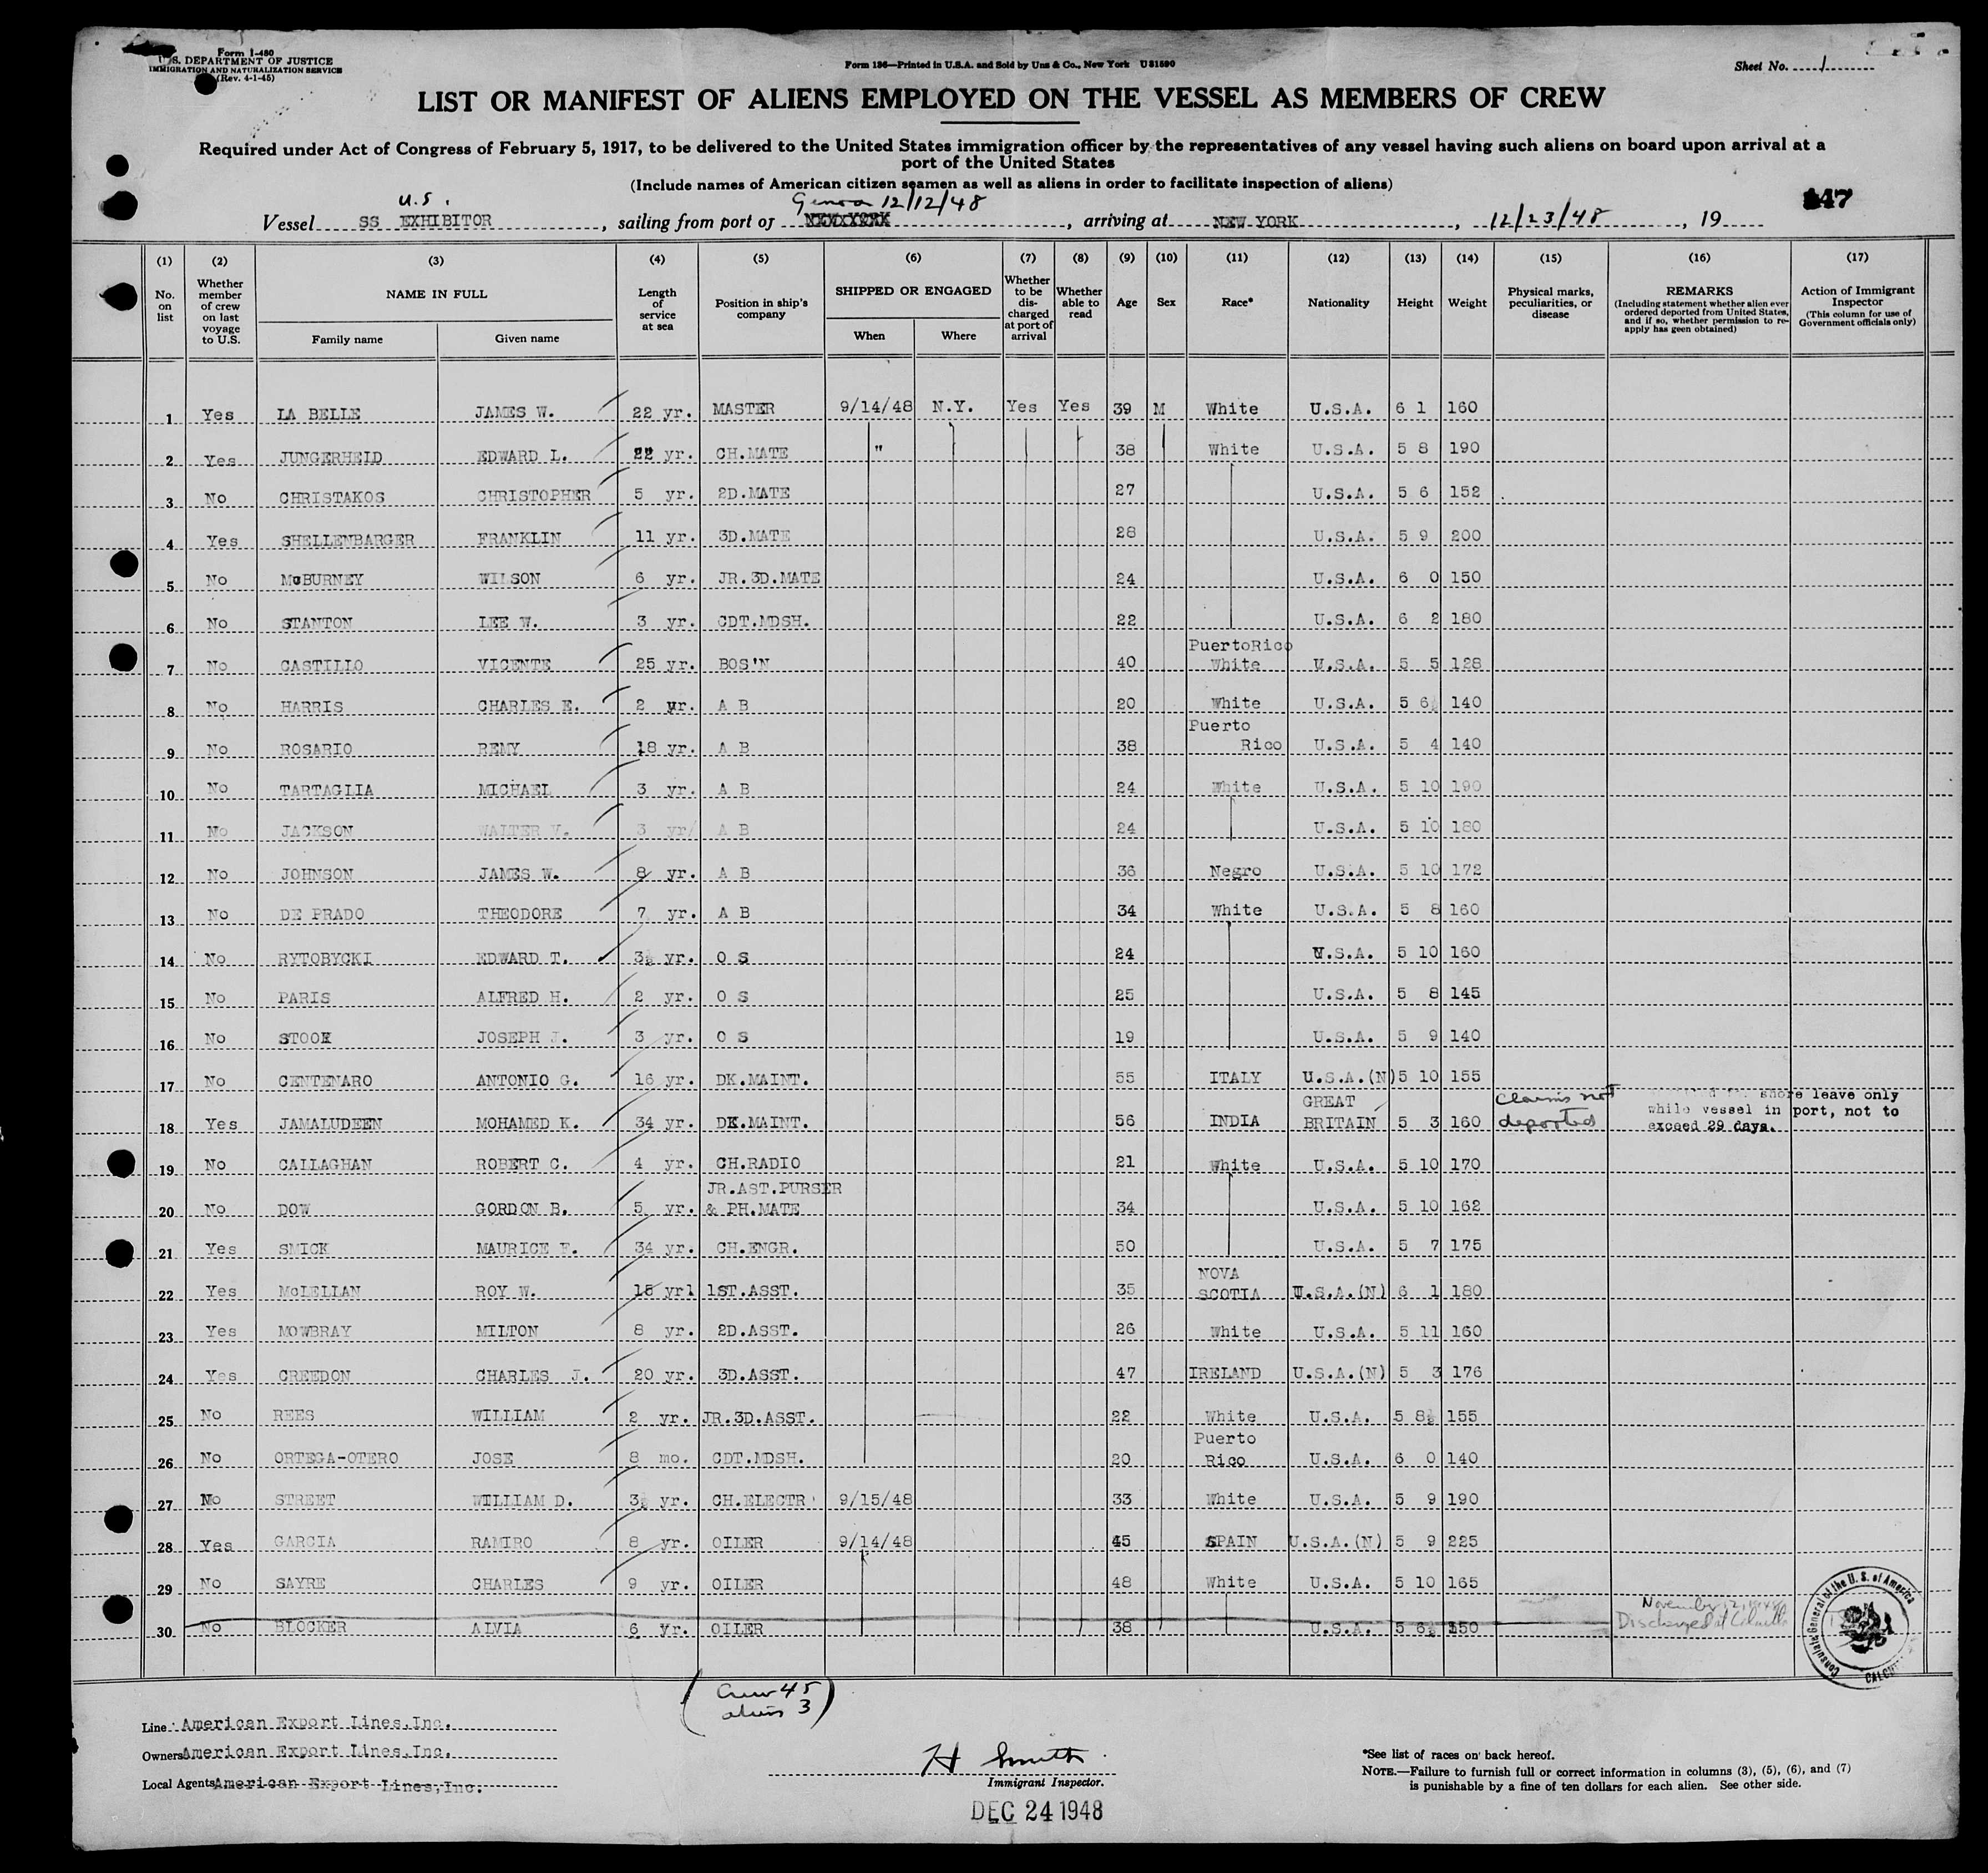 Form I-480
U.S. DEPARTMENT OF JUSTICE
IMMIGRATION AND NATURALIZATION SERVICE
(Rev. 4-1-45)
Form 136—Printed in U.S.A. and Sold by Unz & Co., New York U 81590
Sheet No. 1
LIST OR MANIFEST OF ALIENS EMPLOYED ON THE VESSEL AS MEMBERS OF CREW
Required under Act of Congress of February 5, 1917, to be delivered to the United States immigration officer by the representatives of any vessel having such aliens on board upon arrival at a
port of the United States
(Include names of American citizen seamen as well as aliens in order to facilitate inspection of aliens)
147
U.S. Genoa 12/12/48
Vessel SS EXHIBITOR, sailing from port of NEW YORK, arriving at NEW YORK, 12/23/48, 19
(1) (2) (3) (4) (5) (6) (7) (8) (9) (10) (11) (12) (13) (14) (15) (16) (17)
No. on list
Whether member of crew on last voyage to U.S.
NAME IN FULL
Family name Given name
Length of service at sea
Position in ship's company
SHIPPED OR ENGAGED
When Where
Whether to be discharged at port of arrival
Whether able to read
Age
Sex
Race*
Nationality
Height
Weight
Physical marks, peculiarities, or disease
REMARKS
(Including statement whether alien ever ordered deported from United States, and if so, whether permission to reapply has geen obtained)
Action of Immigrant Inspector
(This column for use of Government officials only)
1 Yes LA BELLE JAMES W. 22 yr. MASTER 9/14/48 N.Y. Yes Yes 39 M White U.S.A. 6 1 160
2 Yes JUNGERHELD EDWARD L. 22 yr. CH.MATE " 38 White U.S.A. 5 8 190
3 No CHRISTAKOS CHRISTOPHER 5 yr. 2D.MATE 27 U.S.A. 5 6 152
4 Yes SHELLENBARGER FRANKLIN 11 yr. 3D.MATE 28 U.S.A. 5 9 200
5 No McBURNEY WILSON 6 yr. JR.3D.MATE 24 U.S.A. 6 0 150
6 No STANTON LEE W. 3 yr. CDT.MDSH. 22 U.S.A. 6 2 180
7 No CASTILLO VICENTE 25 yr. BOS'N 40 PuertoRico White U.S.A. 5 5 128
8 No HARRIS CHARLES E. 2 yr. A B 20 White U.S.A. 5 6½ 140
9 No ROSARIO REMY 18 yr. A B 38 Puerto Rico U.S.A. 5 4 140
10 No TARTAGLIA MICHAEL 3 yr. A B 24 White U.S.A. 5 10 190
11 No JACKSON WALTER V. 3 yr/ A B 24 U.S.A. 5 10 180
12 No JOHNSON JAMES W. 8 yr. A B 36 Negro U.S.A. 5 10 172
13 No DE PRADO THEODORE 7 yr. A B 34 White U.S.A. 5 8 160
14 No RYTOBYCKI EDWARD T. 3½ yr. O S 24 U.S.A. 5 10 160
15 No PARIS ALFRED H. 2 yr. O S 25 U.S.A. 5 8 145
16 No STOOK JOSEPH J. 3 yr. O S 19 U.S.A. 5 9 140
17 No CENTENARO ANTONIO G. 16 yr. DK.MAINT. 55 ITALY U.S.A.(N) 5 10 155
18 Yes JAMALUDEEN MOHAMED K. 34 yr. DK.MAINT. 56 INDIA GREAT BRITAIN 5 3 160 claims not deported shore leave only while vessel in port, not to exceed 29 days.
19 No CALLAGHAN ROBERT C. 4 yr. CH.RADIO 21 White U.S.A. 5 10 170
20 No DOW GORDON B. 5 yr. JR.AST.PURSER & PH.MATE 34 U.S.A. 5 10 162
21 Yes SMICK MAURICE F. 34 yr. CH.ENGR. 50 U.S.A. 5 7 175
22 Yes McLELLAN ROY W. 15 yrl 1ST.ASST. 35 NOVA SCOTIA U.S.A.(N) 6 1 180
23 Yes MOWBRAY MILTON 8 yr. 2D.ASST. 26 White U.S.A. 5 11 160
24 Yes CREEDON CHARLES J. 20 yr. 3D.ASST. 47 IRELAND U.S.A.(N) 5 3 176
25 No REES WILLIAM 2 yr. JR.3D.ASST. 22 White U.S.A. 5 8½ 155
26 No ORTEGA-OTERO JOSE 8 mo. CDT.MDSH. 20 Puerto Rico U.S.A. 6 0 140
27 No STREET WILLIAM D. 3½ yr. CH.ELECTR 9/15/48 33 White U.S.A. 5 9 190
28 Yes GARCIA RAMIRO 8 yr. OILER 9/14/48 45 SPAIN U.S.A.(N) 5 9 225
29 No SAYRE CHARLES 9 yr. OILER 48 White U.S.A. 5 10 165
30 No BLOCKER ALVIA 6 yr. OILER 38 U.S.A. 5 6½ 150 November 12, 1948 Discharged at Calcutta
Consulate General of the U.S. of America
(Crew 45
aliens 3)
Line American Export Lines,Inc.
Owners American Export Lines,Inc.
Local Agents American Export Lines,Inc.
H Smith
Immigrant Inspector.
DEC 24 1948
*See list of races on back hereof.
NOTE.—Failure to furnish full or correct information in columns (3), (5), (6), and (7)
is punishable by a fine of ten dollars for each alien. See other side.